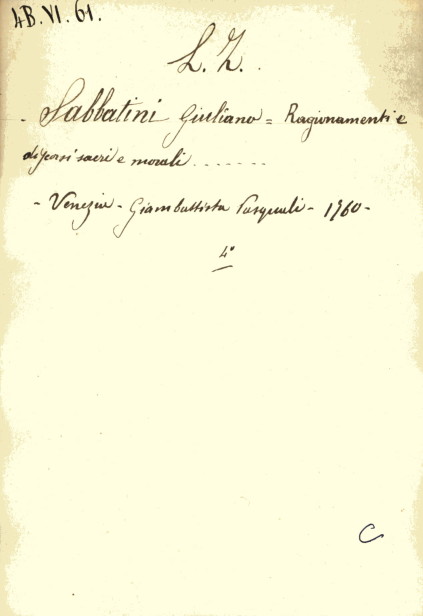 4B.VI.61.
L. Z.
- Sabbatini Giuliano = Ragionamenti e
discorsi sacri e morali .......
- Venezia - Giambattista Pasquali - 1760 -
4°
C